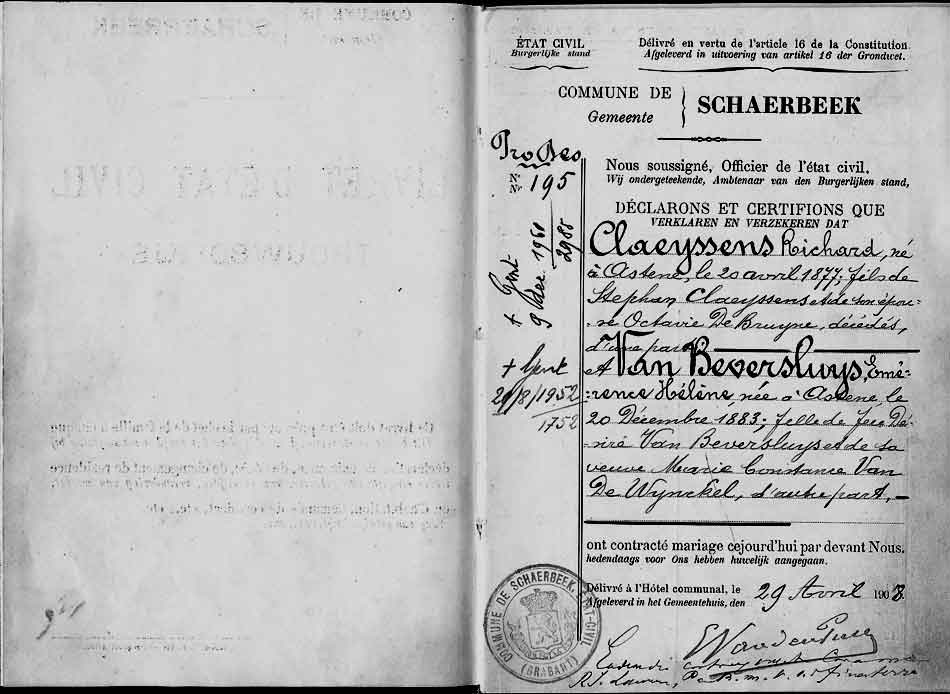 ÉTAT CIVIL
Burgerlijke stand
Délivré en vertu de l'article 16 de la Constitution.
Afgeleverd in uitvoering van artikel 16 der Grondwet.
COMMUNE DE
Gemeente
SCHAERBEEK
Pro Deo
N°
Nr 195
Nous soussigné, Officier de l'état civil.
Wij ondergeteekende, Ambtenaar van den Burgerlijken stand,
DÉCLARONS ET CERTIFIONS QUE
VERKLAREN EN VERZEKEREN DAT
Claeyssens Richard, né
à Astene, le 20 avril 1877; fils de
Stephan Claeyssens et de son épou-
-se Octavie De Bruyne, décédés,
d'une part,
et Van Beversluys, Emé-
-rence Hélène, née à Astene, le
20 Décembre 1883; fille de feu Dé-
siré Van Beversluys et de sa
veuve Marie Constance Van
De Wynckel, d'autre part, -
+ Gent
9 Dec. 1961
2985
+ Gent
/8/1952
1752
ont contracté mariage cejourd'hui par devant Nous.
hedendaags voor Ons hebben huwelijk aangegaan.
Délivré à l'Hôtel communal, le
Afgeleverd in het Gemeentehuis, den
29 Avril 1908.
COMMUNE DE SCHAERBEEK ETAT-CIVIL
(BRABANT)